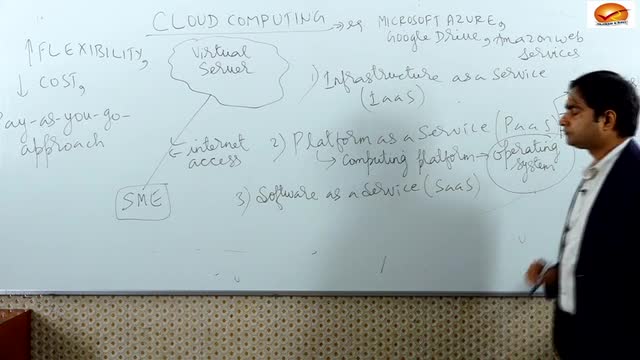 CLOUD COMPUTING → eg MICROSOFT AZURE,
Google Drive, Amazon web
Services
↑ FLEXIBILITY,
↓ COST,
Pay-as-you-go-
approach
Virtual
Server
internet
access
SME
1) Infrastructure as a Service
(IaaS)
2) Platform as a Service (PaaS)
↳ Computing platform → operating
system
3) Software as a Service (SaaS)